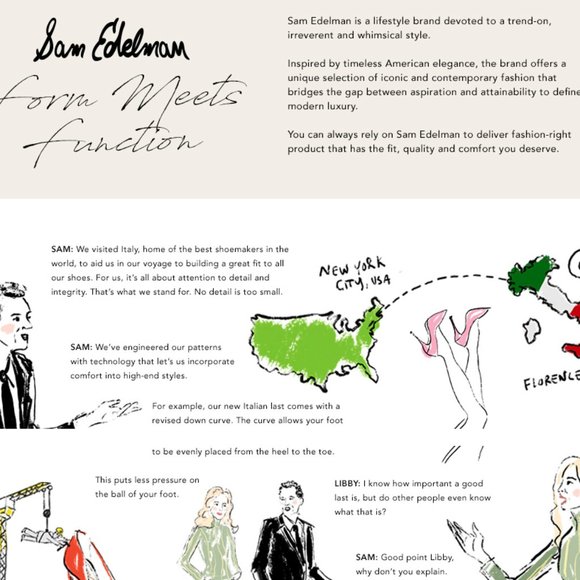 Sam Edelman
Form Meets
Function
Sam Edelman is a lifestyle brand devoted to a trend-on,
irreverent and whimsical style.
Inspired by timeless American elegance, the brand offers a
unique selection of iconic and contemporary fashion that
bridges the gap between aspiration and attainability to define
modern luxury.
You can always rely on Sam Edelman to deliver fashion-right
product that has the fit, quality and comfort you deserve.
SAM: We visited Italy, home of the best shoemakers in the
world, to aid us in our voyage to building a great fit to all
our shoes. For us, it's all about attention to detail and
integrity. That's what we stand for. No detail is too small.
NEW YORK
CITY, USA
FLORENCE
SAM: We've engineered our patterns
with technology that let's us incorporate
comfort into high-end styles.
For example, our new Italian last comes with a
revised down curve. The curve allows your foot
to be evenly placed from the heel to the toe.
This puts less pressure on
the ball of your foot.
LIBBY: I know how important a good
last is, but do other people even know
what that is?
SAM: Good point Libby,
why don't you explain.